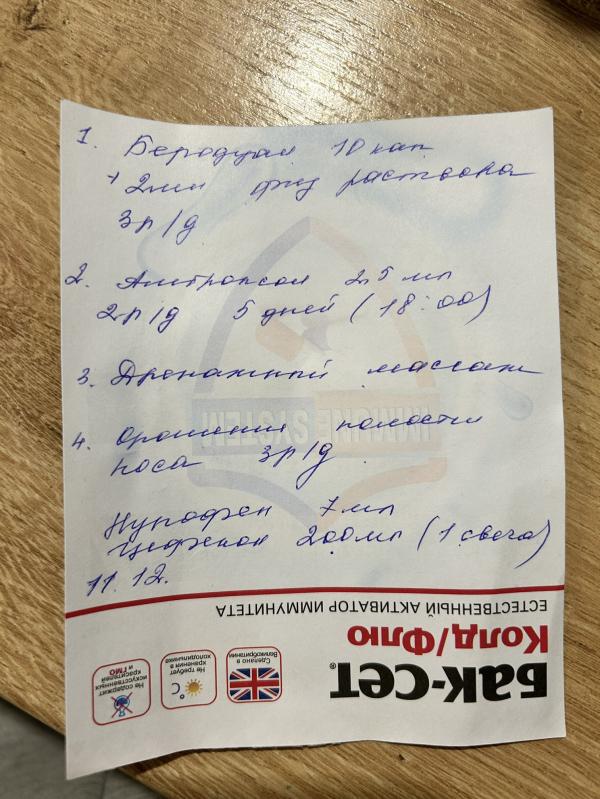 1. Беродуал 10 кап
+ 2 мл физ раствора
3 р/д
2. Амброксол 2,5 мл
2 р/д 5 дней (18:00)
3. Дренажный массаж
4. Орошение полости
носа 3 р/д
Нурофен 7 мл
Цефекон 200 мл (1 свеча)
11.12.
IMMUNE SYSTEM
ЕСТЕСТВЕННЫЙ АКТИВАТОР ИММУНИТЕТА
Колд/Флю
Бак-сет®
Сделано в
Великобритании
Не требует
хранения в
холодильнике
°C
Не содержит
искусственных
красителей
и ГМО